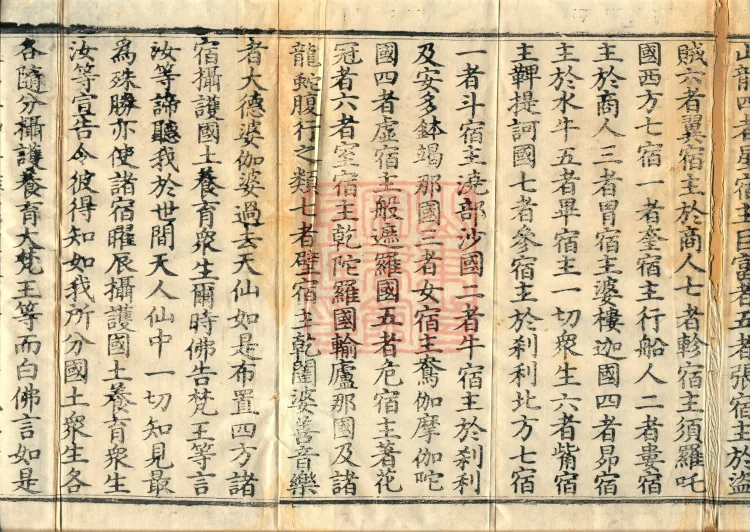 山龍四者星宿主巨富者五者張宿主於盜
賊六者翼宿主於商人七者軫宿主須羅吒
國西方七宿一者奎宿主行船人二者婁宿
主於商人三者胃宿主婆樓迦國四者昴宿
主於水牛五者畢宿主一切衆生六者觜宿
主鞞提訶國七者參宿主於刹利北方七宿
一者斗宿主澆部沙國二者牛宿主於刹利
及安多鉢竭那國三者女宿主鴦伽摩伽陀
國四者虛宿主般遮羅國五者危宿主著花
冠者六者室宿主乾陀羅國輸盧那國及諸
龍蛇腹行之類七者壁宿主乾闥婆善音樂
者大德婆伽婆過去天仙如是布置四方諸
宿攝護國土養育衆生爾時佛告梵王等言
汝等諦聽我於世間天人仙中一切知見最
為殊勝亦使諸宿曜辰攝護國土養育衆生
汝等宣告令彼得知如我所分國土衆生各
各隨分攝護養育大梵王等而白佛言如是